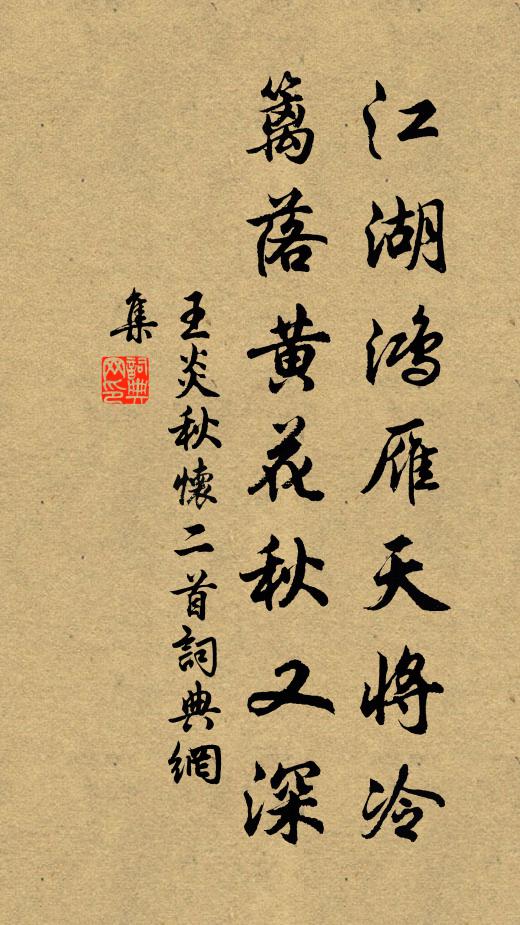 江湖鴻雁天將冷
籬落黄花秋又深
王炎秋懷二首詞典網
集
詞典
网印